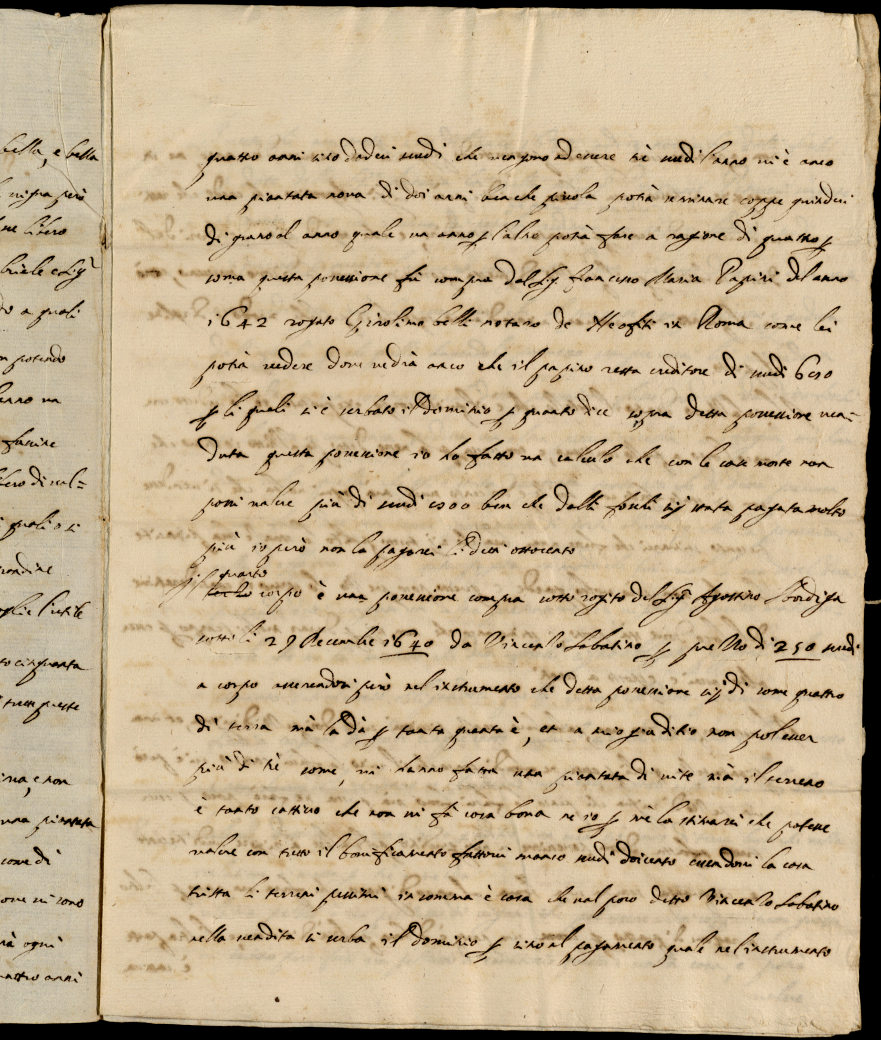 quattro anni sino dodeci scudi che vengono ad essere tre scudi l'anno vi è anco
una piantata nova di doi anni ben che picola potrà seminare coppe quindeci
di grano al anno quale un anno p l'altro potrà fare a ragione di quattro p
soma questa possessione fu compra dal Sig. Francesco Maria Papini del anno
1642 rogato Girolimo belli notaro de in Roma come lei
potrà vedere dove vedrà anco che il papino resta creditore di scudi 650
p li quali si è serbato il Dominio p quanto dice sopra detta possessione ven=
duta questa possessione io ho fatto un calculo che con le case morte non
possi valere più di scudi ben che dalli sij stata pagata molto
più io però non la pagarei li detti ottocento
quarto
corpo è una possessione compra sotto rogito del Sig. Agostino Bordiga
sotto li 29 Decembre 1640 da Vincenzo Sabatino p prezzo di 250 scudi
a corpo asserendosi però nel instrumento che detta possessione sij di some quattro
di terra mà la dà p tanta quanta è, et a mio giuditio non pol esser
più di trè some, vi hanno fatta una piantata di vite mà il terreno
è tanto cattivo che non vi fà cosa bona ne io p mè la stimarei che potesse
valere con tutto il bonificamento fattovi manco scudi doicento essendovi la casa
trista li terreni pessimi in somma è cosa che val poco detto Vincenzo Sabatino
nella vendita si serba il Dominio p sino al pagamento quale nel instrumento
è

bella, e bella
però
libero
briele e Sig.
a quali
potendo
hanno un
di sul=
quali
l'utile
to cinquanta
tutte queste
e non
una piantata
come di
ove vi sono
rà ogni
quattro anni